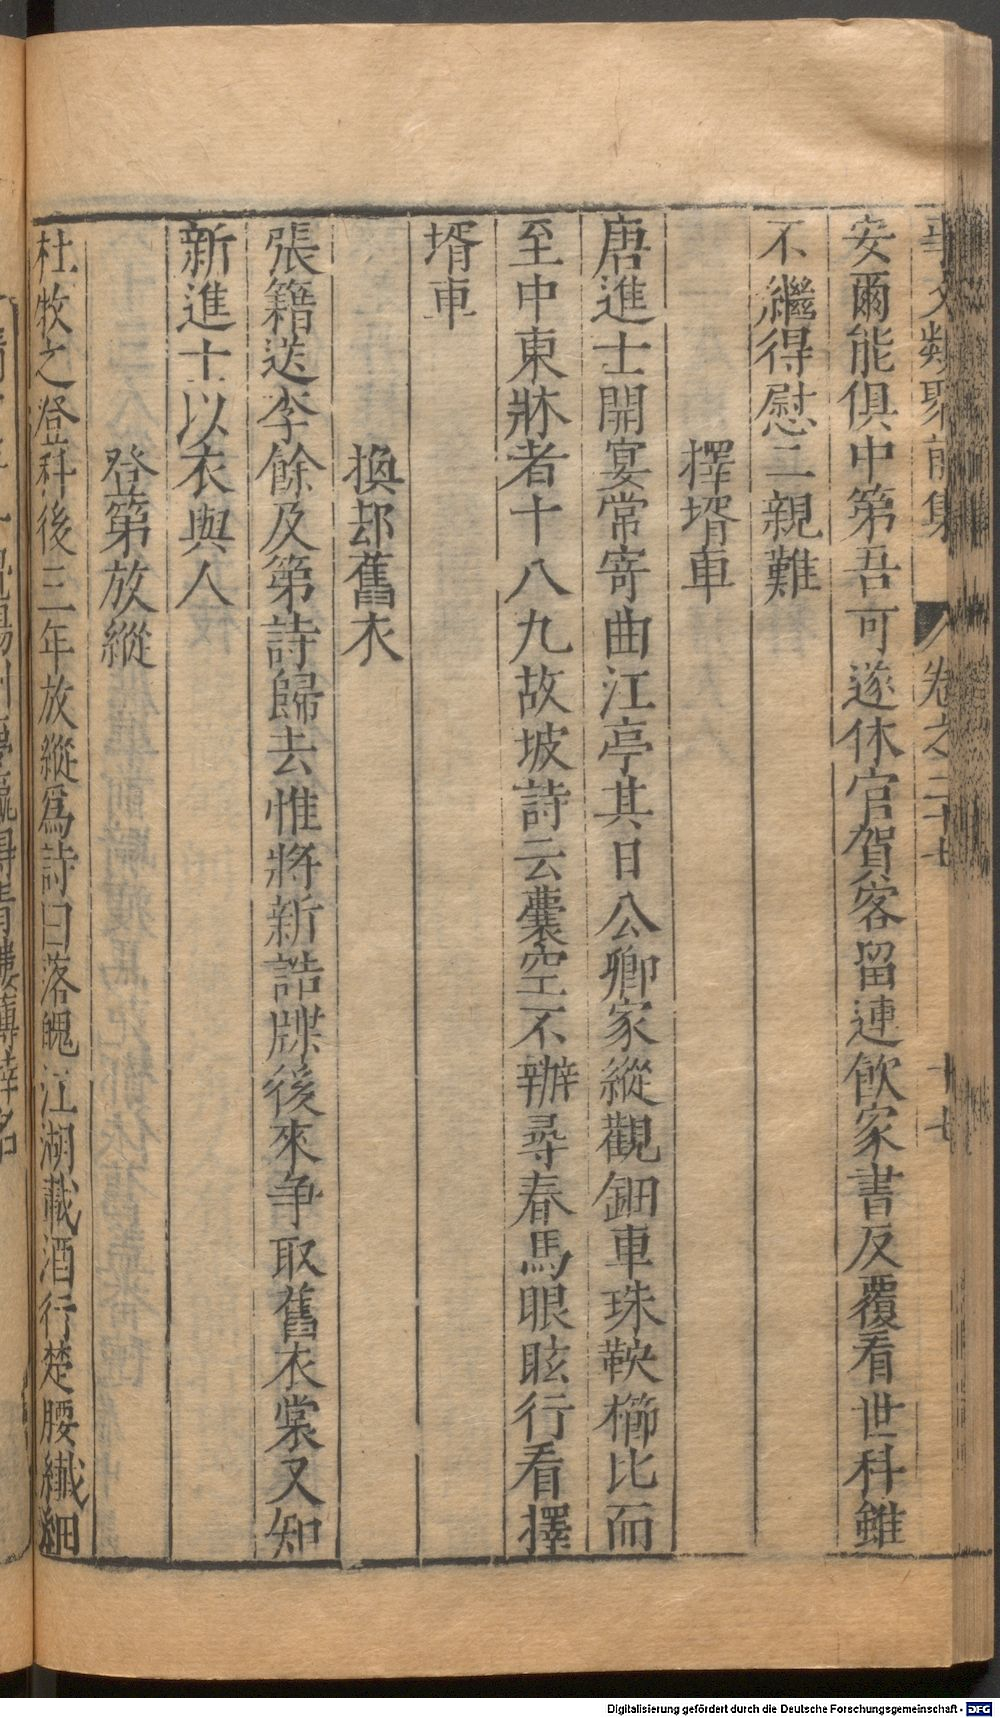 事文類聚前集 卷之二十七 十七
安爾能俱中第吾可遂休官賀客留連飲家書反覆看世科雖
不繼得慰二親難
擇壻車
唐進士開宴常寄曲江亭其日公卿家縱觀鈿車珠鞅櫛比而
至中東牀者十八九故坡詩云囊空不辦尋春馬眼眩行看擇
壻車
換却舊衣
張籍送李餘及第詩歸去惟將新誥牒後來争取舊衣裳又知
新進士以衣與人
登第放縱
杜牧之登科後三年放縱爲詩曰落魄江湖載酒行楚腰纖細
Digitalisierung gefördert durch die Deutsche Forschungsgemeinschaft - DFG